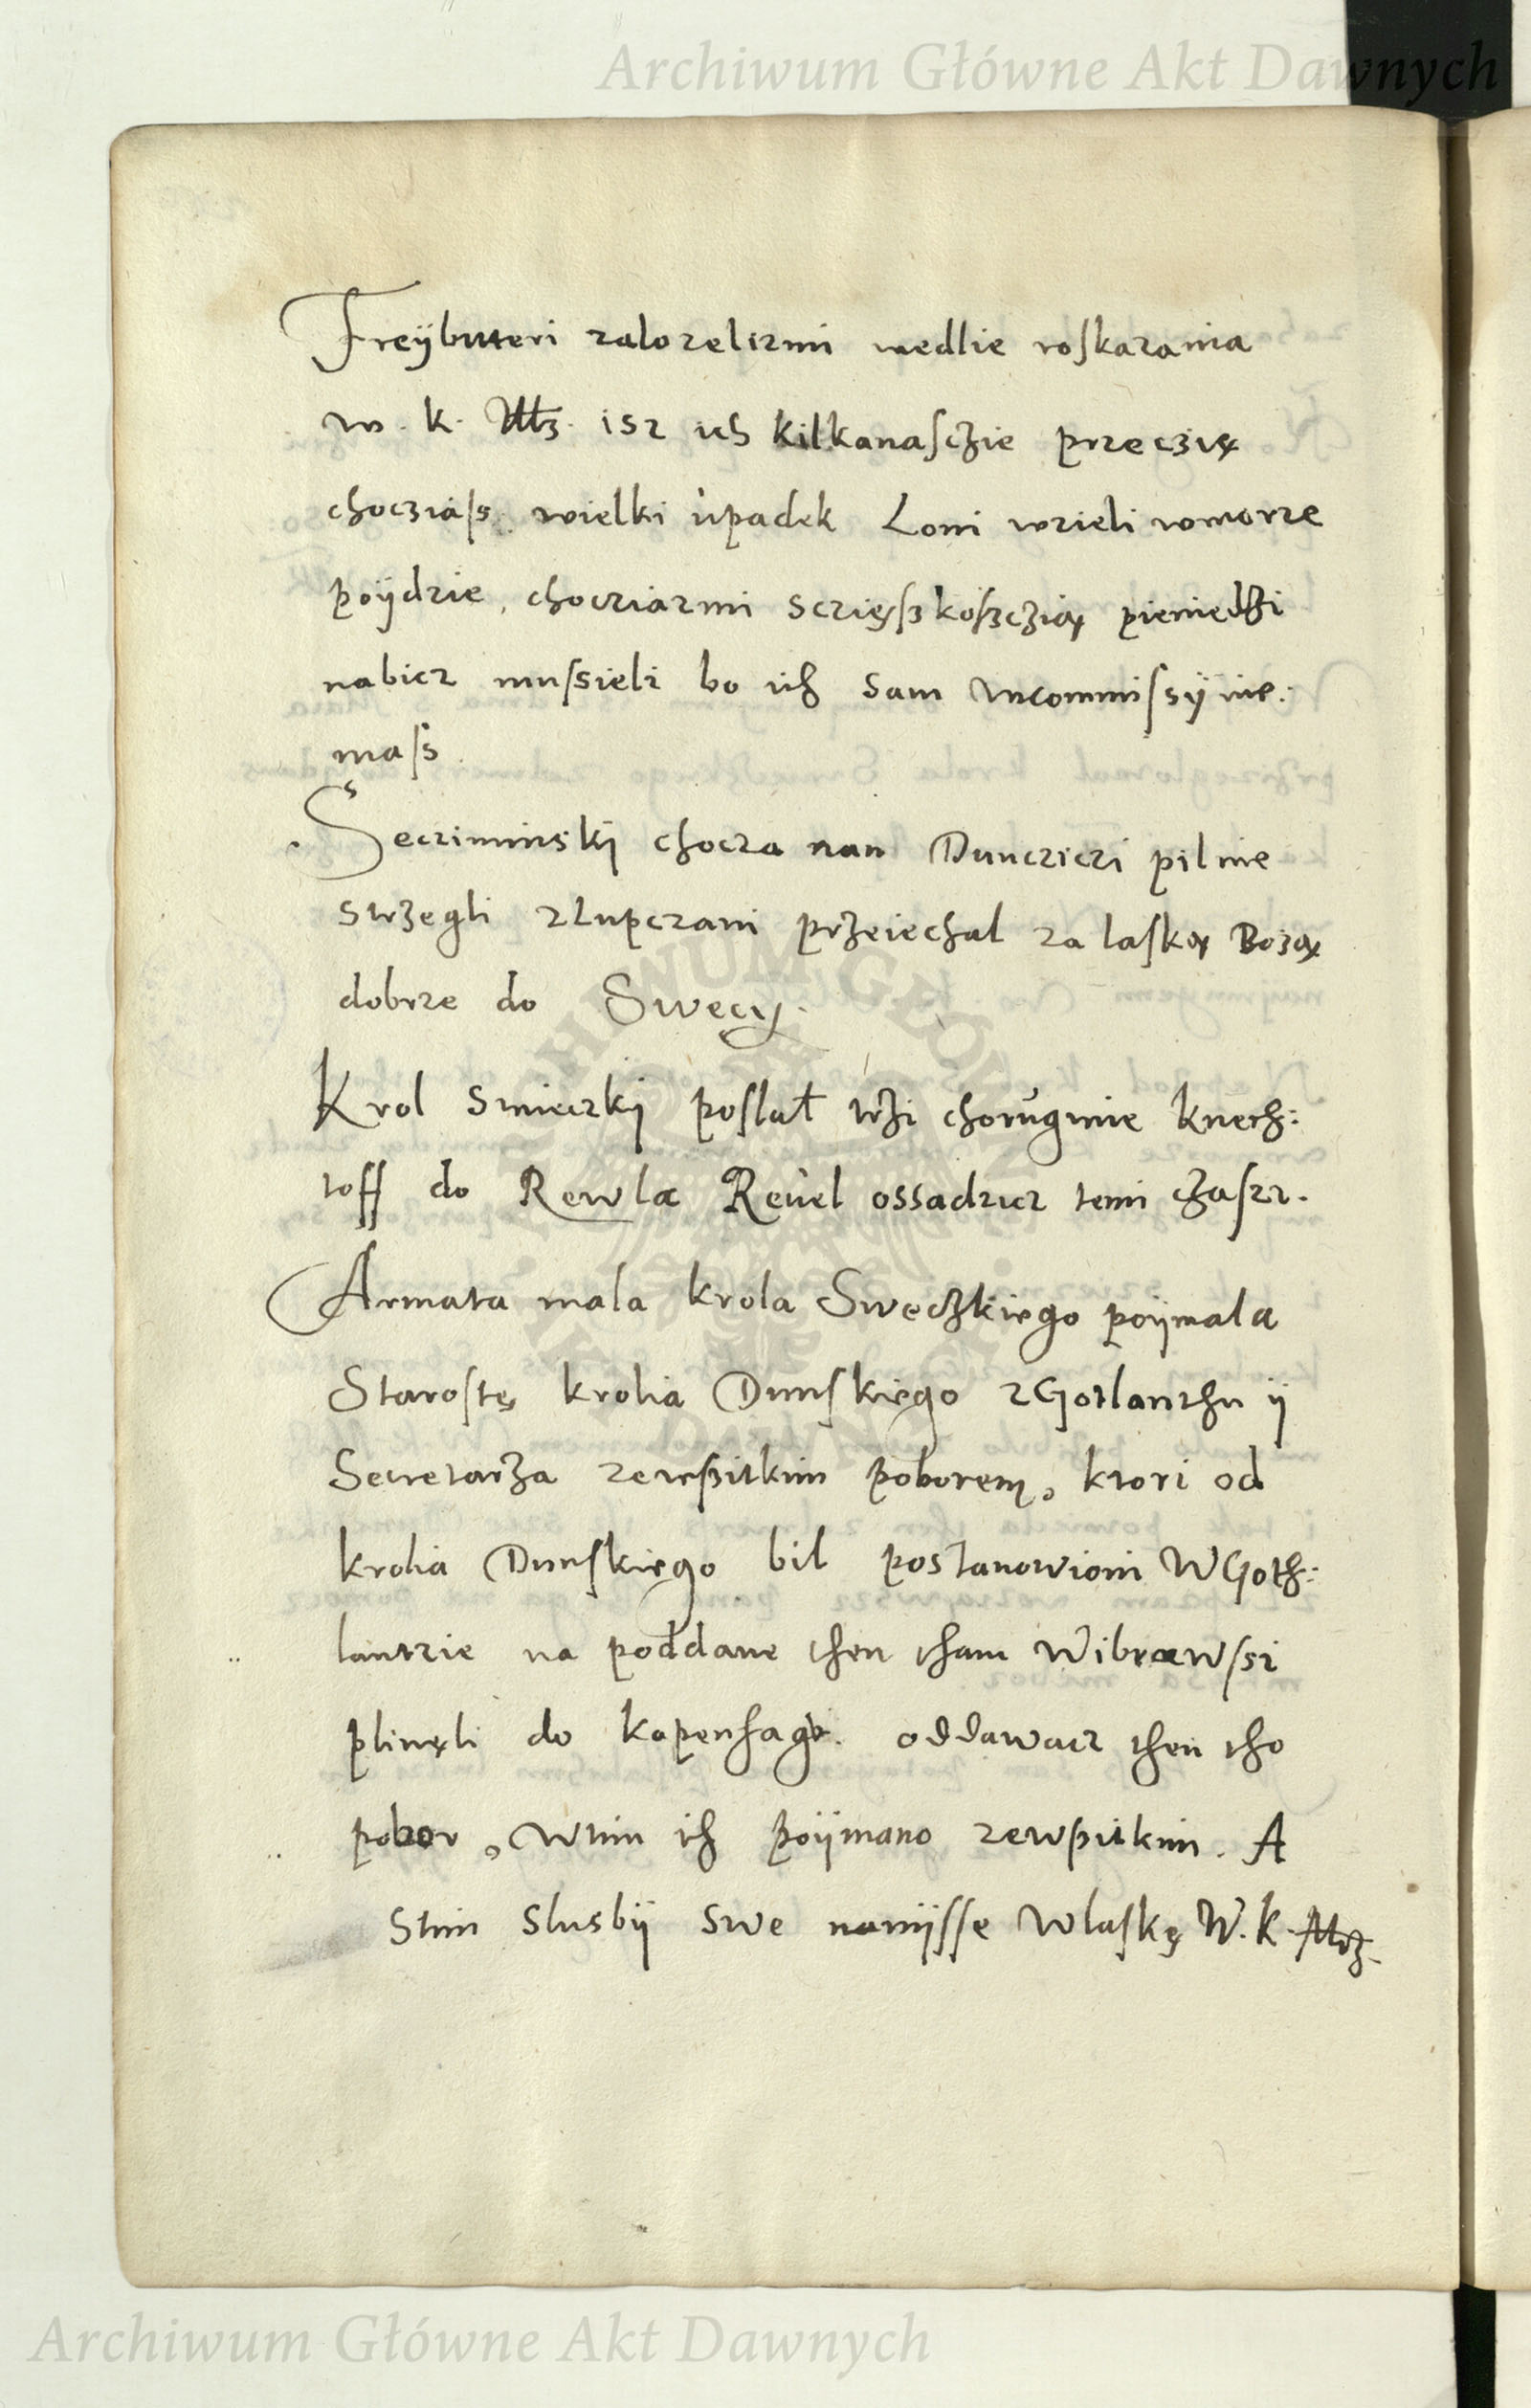 Archiwum Główne Akt Dawnych
Freÿbiteri zalozelizmi wedlie roskazania
w. k. Młz. isz ich kilkanasczie przeczię
choczias wielki upadek Loni wzieli womorze
poÿdzie, chocziazmi sczięszkosczią pieniedzi
nabicz mussieli bo ich sam Incommissÿ nie:
mass
Secziminskÿ chocza nan Dunczici pilnie
strzegli zlupczani przeiechal za laską Bozą
dobrze do Swecÿ.
Krol Swieczkÿ poslał trzi chorugwie knech:
toff do Rewla Revel ossadzicz temi czaszi.
Armata mala krola Sweczkiego poÿmala
Starostę krolia Dunskiego z Gotlanthu ÿ
Secretarza zewszitkim poborem, ktori od
krolia Dunskiego bil postanowioni W Goth:
lantzie na poddane then tham Wibrawssi
plinęli do kopenhagi. oddawacz then tho
pobor, Wtim ich poÿmano zewszitkim. A
Stim Slusbÿ Swe naniÿsse Wlaskę W. K. Mcz.
Archiwum Główne Akt Dawnych